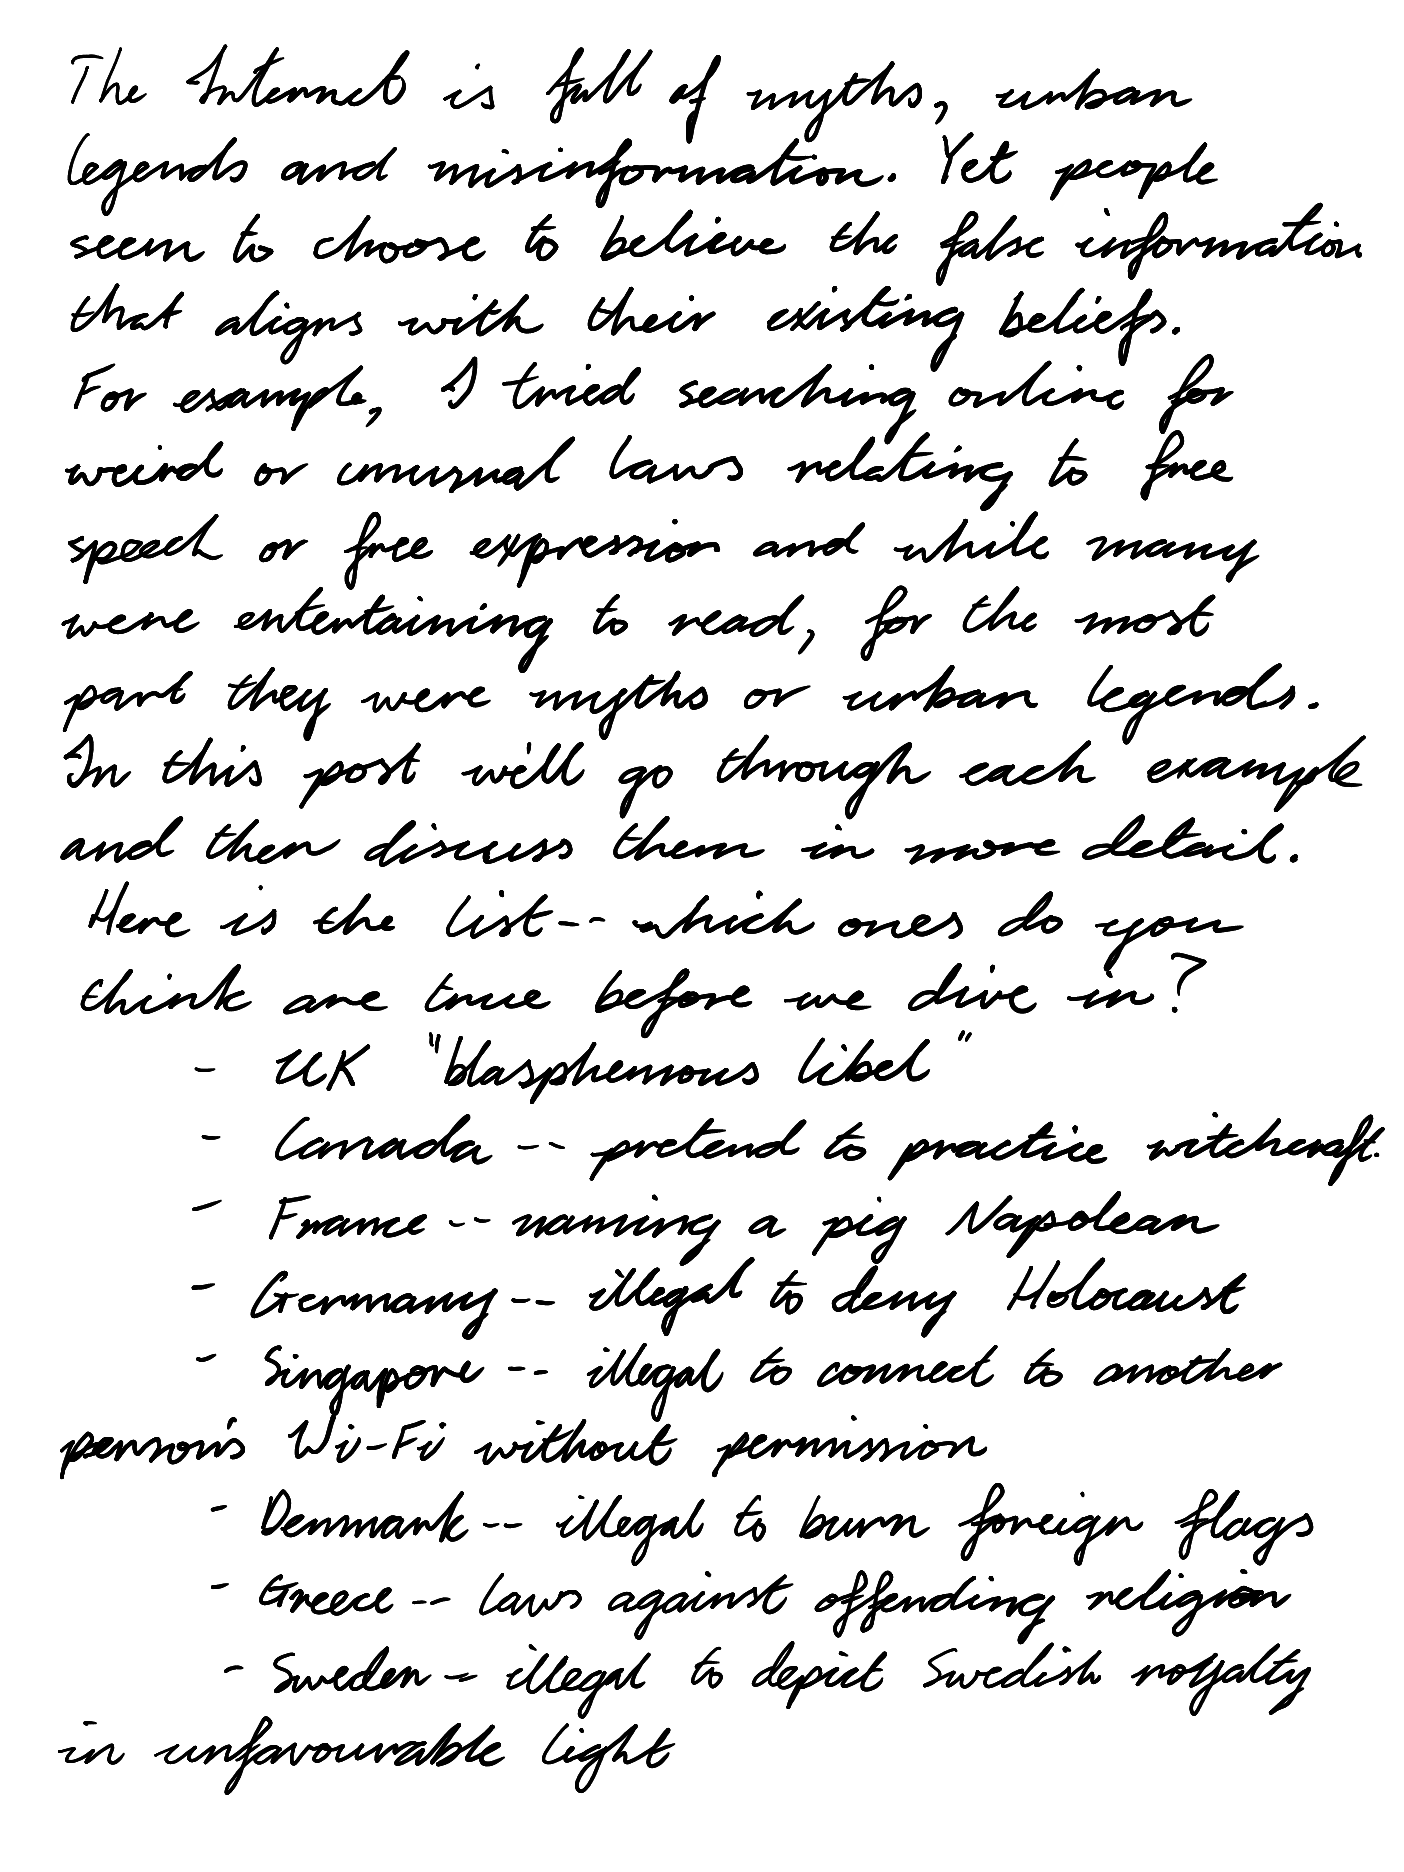 The Internet is full of myths, urban
legends and misinformation. Yet people
seem to choose to believe the false information
that aligns with their existing beliefs.
For example, I tried searching online for
weird or unusual laws relating to free
speech or free expression and while many
were entertaining to read, for the most
part they were myths or urban legends.
In this post we'll go through each example
and then discuss them in more detail.
Here is the list -- which ones do you
think are true before we dive in?
- UK "blasphemous libel"
- Canada -- pretend to practice witchcraft.
- France -- naming a pig Napolean
- Germany -- illegal to deny Holocaust
- Singapore -- illegal to connect to another
person's Wi-Fi without permission
- Denmark -- illegal to burn foreign flags
- Greece -- laws against offending religion
- Sweden -- illegal to depict Swedish royalty
in unfavourable light